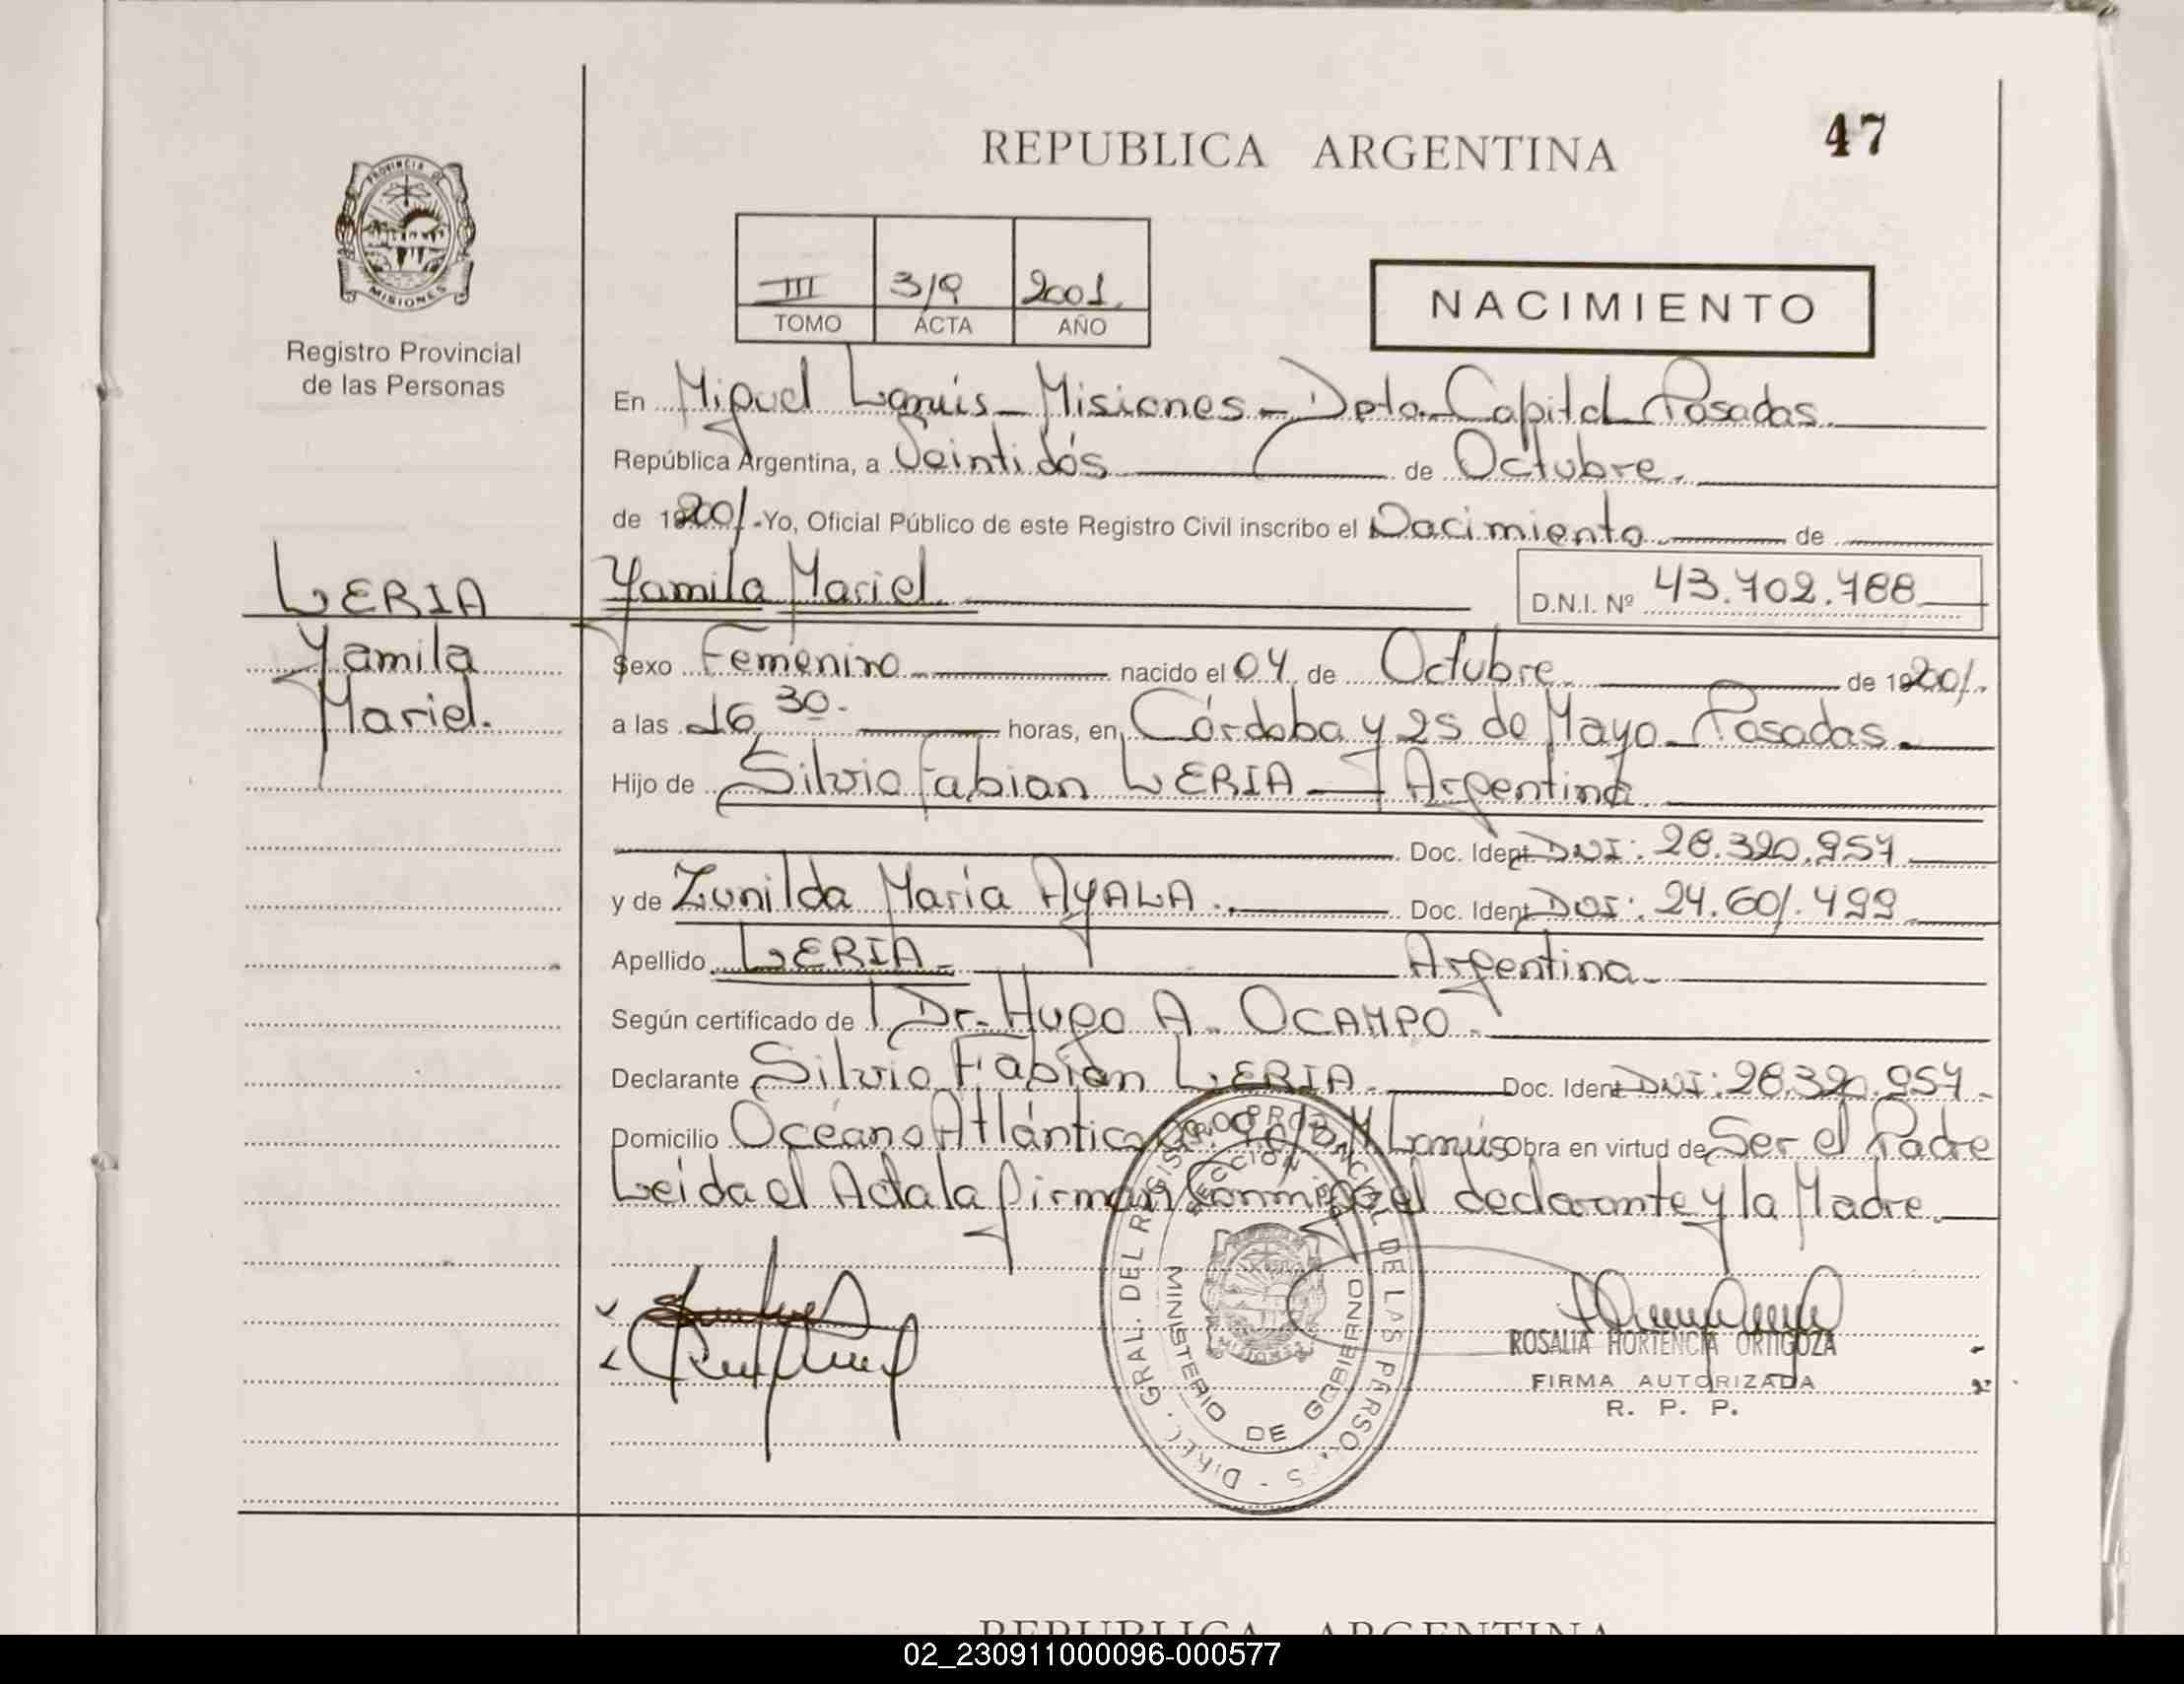 47
REPUBLICA ARGENTINA
PROVINCIA DE
MISIONES
Registro Provincial
de las Personas
III 319 2001
TOMO ACTA AÑO
NACIMIENTO
En Miguel Lanús - Misiones - Dpto. Capital Posadas.
República Argentina, a Veintidós de Octubre.
de 2001.-Yo, Oficial Público de este Registro Civil inscribo el Nacimiento de
LERIA
Yamila Mariel
D.N.I. Nº 43.702.788
Yamila
Mariel.
Sexo Femenino nacido el 04 de Octubre de 2001.
a las 16 30 horas, en Córdoba y 25 de Mayo - Posadas.
Hijo de Silvio Fabian LERIA - Argentina
Doc. Ident DNI: 28.320.957
y de Zunilda María AYALA. Doc. Ident DNI: 24.601.499
Apellido LERIA - Argentina
Según certificado de Dr. Hugo A. OCAMPO
Declarante Silvio Fabián LERIA Doc. Ident DNI: 28.320.957
Domicilio Oceano Atlántico M. Lanús Obra en virtud de Ser el Padre
Leida el Acta la firman conmigo el declarante y la Madre.
DIREC. GRAL. DEL REGISTRO PROVINCIAL DE LAS PERSONAS
SECCION
MINISTERIO DE GOBIERNO
MISIONES
ROSALIA HORTENCIA ORTIGOZA
FIRMA AUTORIZADA
R. P. P.
REPUBLICA ARGENTINA
02_230911000096-000577